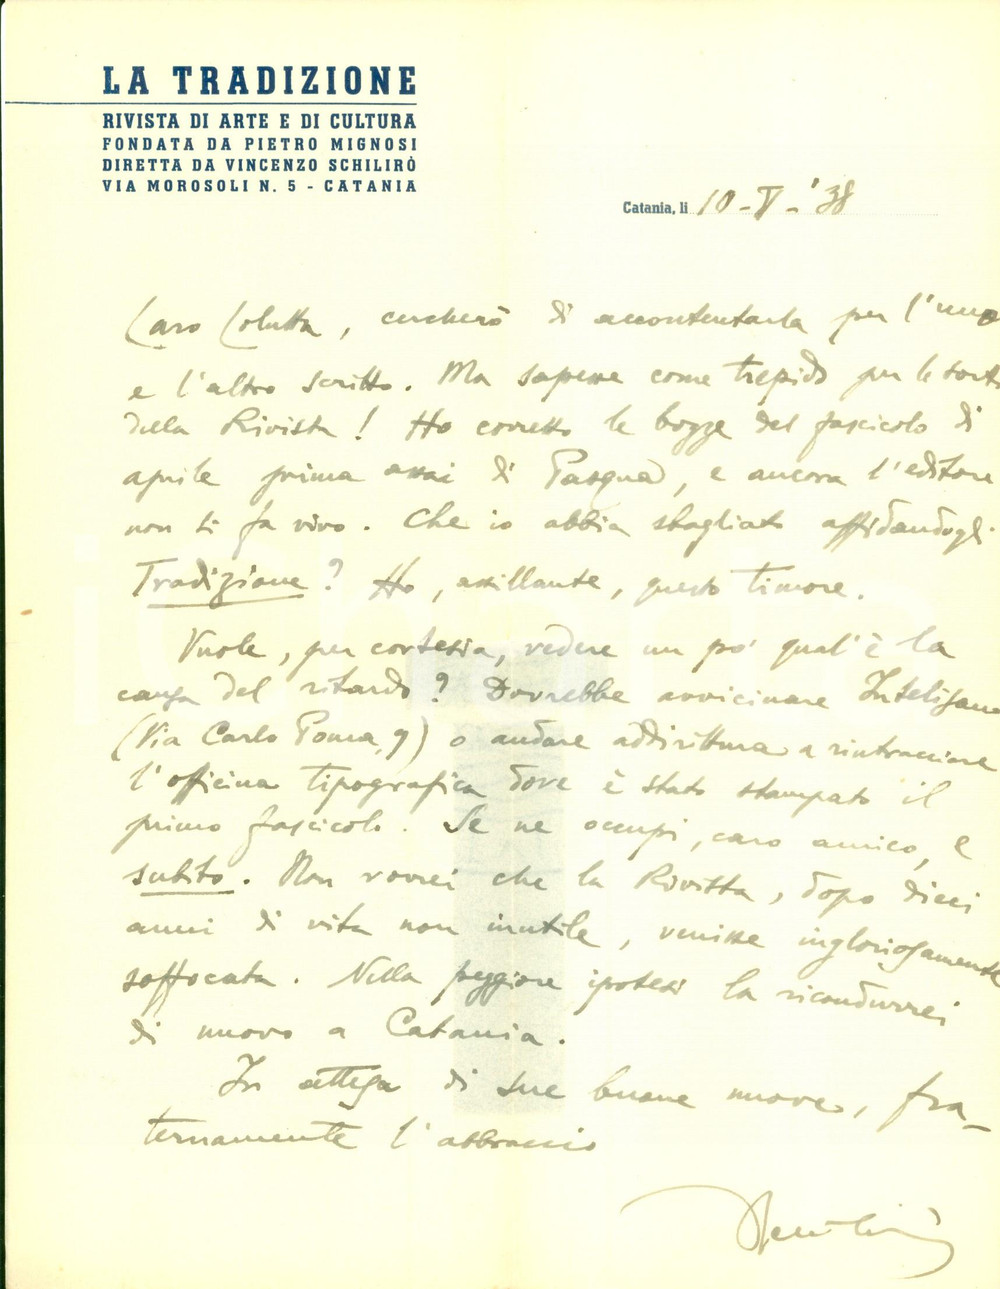 LA TRADIZIONE
RIVISTA DI ARTE E DI CULTURA
FONDATA DA PIETRO MIGNOSI
DIRETTA DA VINCENZO SCHILIRÒ
VIA MOROSOLI N. 5 - CATANIA
Catania, li 10-V-'38
Caro , cercherò di accontentarla per l'uno
e l'altro scritto. Ma sapesse come trepido per le sorti
della Rivista! Ho corretto le bozze del fascicolo di
aprile prima assai di Pasqua, e ancora l'editore
non si fa vivo. Che io abbia sbagliato affidandogli
Tradizione? Ho, assillante, questo timore.
Vuole, per cortesia, vedere un po' qual'è la
causa del ritardo? Dovrebbe avvicinare
(Via Carlo Poma, 9) o andare addirittura a rintracciare
l'officina tipografica dove è stato stampato il
primo fascicolo. Se ne occupi, caro amico, e
subito. Non vorrei che la Rivista, dopo dieci
anni di vita non inutile, venisse ingloriosamente
soffocata. Nella peggiore ipotesi la ricondurrei
di nuovo a Catania.
In attesa di sue buone nuove, fra-
ternamente l'abbraccio